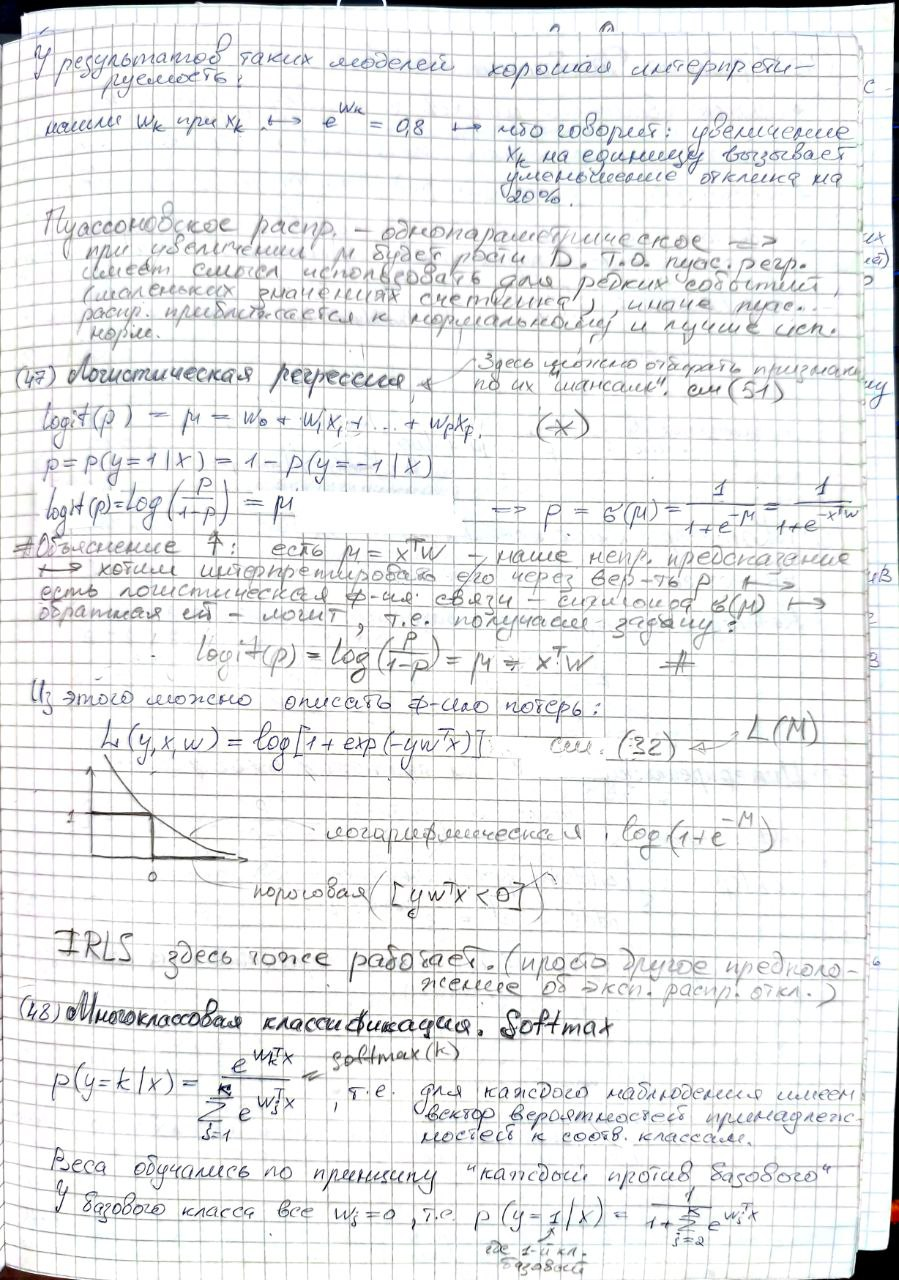 У результатов таких моделей хорошая интерпрети-
руемость:
нашли wₖ при xₖ ↦ e^{wₖ} = 0,8 ↦ что говорит: увеличение
xₖ на единицу вызывает
уменьшение отклика на
20%.
Пуассоновское распр. – однопараметрическое =>
при увеличении μ будет расти D. Т.о. пуас. регр.
имеет смысл использовать для редких событий
(маленьких значениях счетчика), иначе пуас.
распр. приближается к нормальному и лучше исп.
норм.
(47) Логистическая регрессия
Здесь можно отбирать признаки
по их "шансам". см (51)
logit(p) = μ = w₀ + w₁x₁ + ... + wₚxₚ. (*)
p = p(y=1|x) = 1 - p(y=-1|x)
logit(p) = log(p/(1-p)) = μ => p = σ(μ) = 1/(1+e^{-μ}) = 1/(1+e^{-xᵀw})
#Объяснение ↑: есть μ = xᵀw – наше непр. предсказание
↦ хотим интерпретировать его через вер-ть p ↦
есть логистическая ф-ия связи – сигмоида σ(μ) ↦
обратная ей – логит, т.е. получаем задачу:
logit(p) = log(p/(1-p)) = μ = xᵀw #
Из этого можно описать ф-ию потерь:
L(y,x,w) = log[1 + exp(-ywᵀx)] см. (32) L(M)
1
логарифмическая log(1+e^{-M})
0
пороговая ([ywᵀx < 0])
IRLS здесь тоже работает. (просто другое предполо-
жение об эксп. распр. откл.)
(48) Многоклассовая классификация. Softmax
p(y=k|x) = e^{wₖᵀx} / Σ_{j=1}^{K} e^{wⱼᵀx} = softmax(k)
, т.е. для каждого наблюдения имеем
вектор вероятностей принадлеж-
ностей к соотв. классам.
Веса обучались по принципу "каждый против базового"
У базового класса все wⱼ = 0, т.е. p(y=1|x) = 1/(1+Σ_{j=2}^{K} e^{wⱼᵀx})
где 1-й кл.
базовый